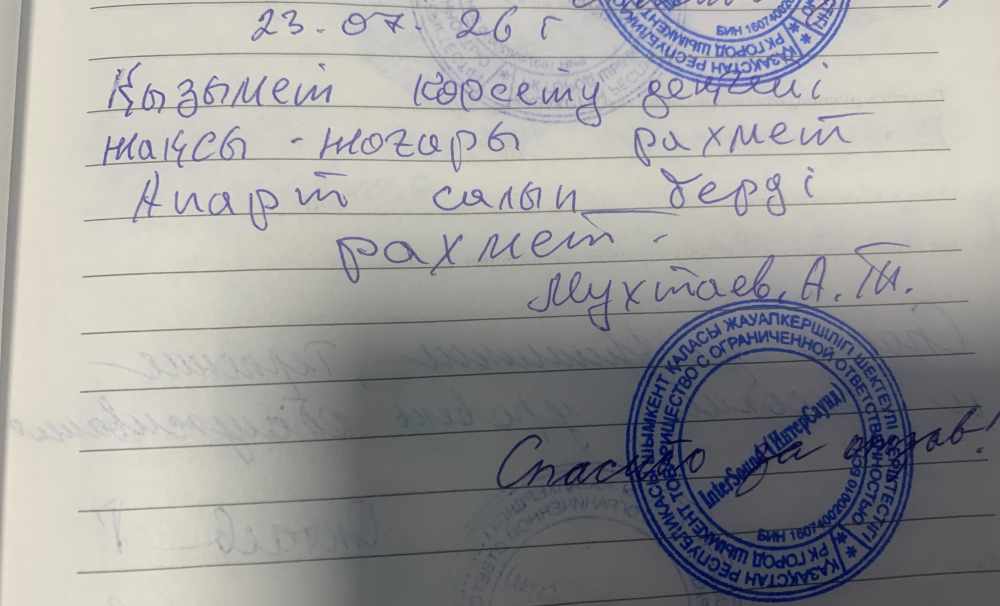 23.07.26 г
Қызымет көрсету деңгейі
жақсы - жоғары рахмет
Апарт салып берді
рахмет.
Мухтаев. А. Т.
Спасибо за отзав!
ҚАЗАҚСТАН РЕСПУБЛИКАСЫ ШЫМКЕНТ ҚАЛАСЫ ЖАУАПКЕРШІЛІГІ ШЕКТЕУЛІ СЕРІКТЕСТІГІ
РК ГОРОД ШЫМКЕНТ ТОВАРИЩЕСТВО С ОГРАНИЧЕННОЙ ОТВЕТСТВЕННОСТЬЮ
InterSound (ИнтерСаунд)
БИН 160740020010
ҚАЗАҚСТАН РЕСПУБЛИКАСЫ
РК ГОРОД ШЫМКЕНТ
БИН 1607400